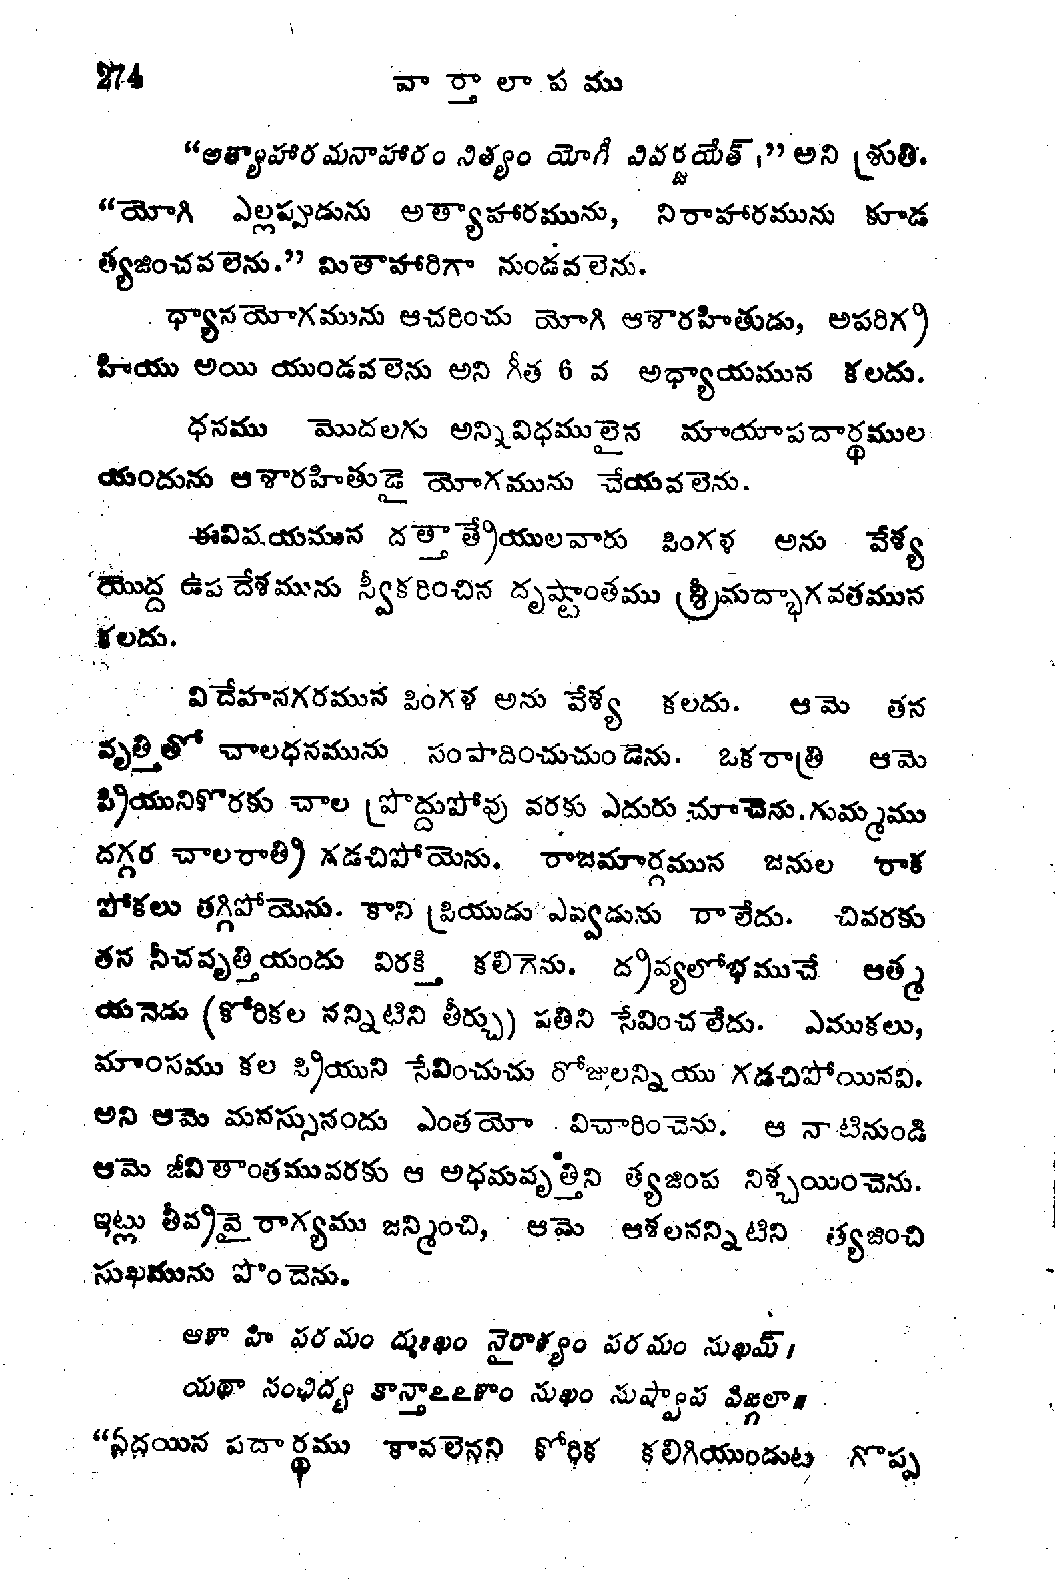 274 వార్తాలాపము
“అత్యాహారమనాహారం నిత్యం యోగీ వివర్జయేత్।” అని శ్రుతి.
“యోగి ఎల్లప్పుడును అత్యాహారమును, నిరాహారమును కూడ
త్యజించవలెను.” మితాహారిగా నుండవలెను.
ధ్యానయోగమును ఆచరించు యోగి ఆశారహితుడు, అపరిగ్ర
హియు అయి యుండవలెను అని గీత 6 వ అధ్యాయమున కలదు.
ధనము మొదలగు అన్నివిధములైన మాయాపదార్థముల
యందును ఆశారహితుడై యోగమును చేయవలెను.
ఈవిషయమున దత్తాత్రేయులవారు పింగళ అను వేశ్య
యొద్ద ఉపదేశమును స్వీకరించిన దృష్టాంతము శ్రీమద్భాగవతమున
కలదు.
విదేహనగరమున పింగళ అను వేశ్య కలదు. ఆమె తన
వృత్తితో చాలధనమును సంపాదించుచుండెను. ఒకరాత్రి ఆమె
ప్రియునికొరకు చాల ప్రొద్దుపోవు వరకు ఎదురు చూచెను. గుమ్మము
దగ్గర చాలరాత్రి గడచిపోయెను. రాజమార్గమున జనుల రాక
పోకలు తగ్గిపోయెను. కాని ప్రియుడు ఎవ్వడును రాలేదు. చివరకు
తన నీచవృత్తియందు విరక్తి కలిగెను. ద్రవ్యలోభముచే ఆత్మ
యనెడు (కోరికల నన్నిటిని తీర్చు) పతిని సేవించలేదు. ఎముకలు,
మాంసము కల ప్రియుని సేవించుచు రోజులన్నియు గడచిపోయినవి.
అని ఆమె మనస్సునందు ఎంతయో విచారించెను. ఆ నాటినుండి
ఆమె జీవితాంతమువరకు ఆ అధమవృత్తిని త్యజింప నిశ్చయించెను.
ఇట్లు తీవ్రవైరాగ్యము జన్మించి, ఆమె ఆశలనన్నిటిని త్యజించి
సుఖమును పొందెను.
ఆశా హి పరమం దుఃఖం నైరాశ్యం పరమం సుఖమ్।
యథా సంఛిద్య కాన్తాఽఽశాం సుఖం సుష్వాప పిఙ్గలా॥
“ఏదయిన పదార్థము కావలెనని కోరిక కలిగియుండుట గొప్ప